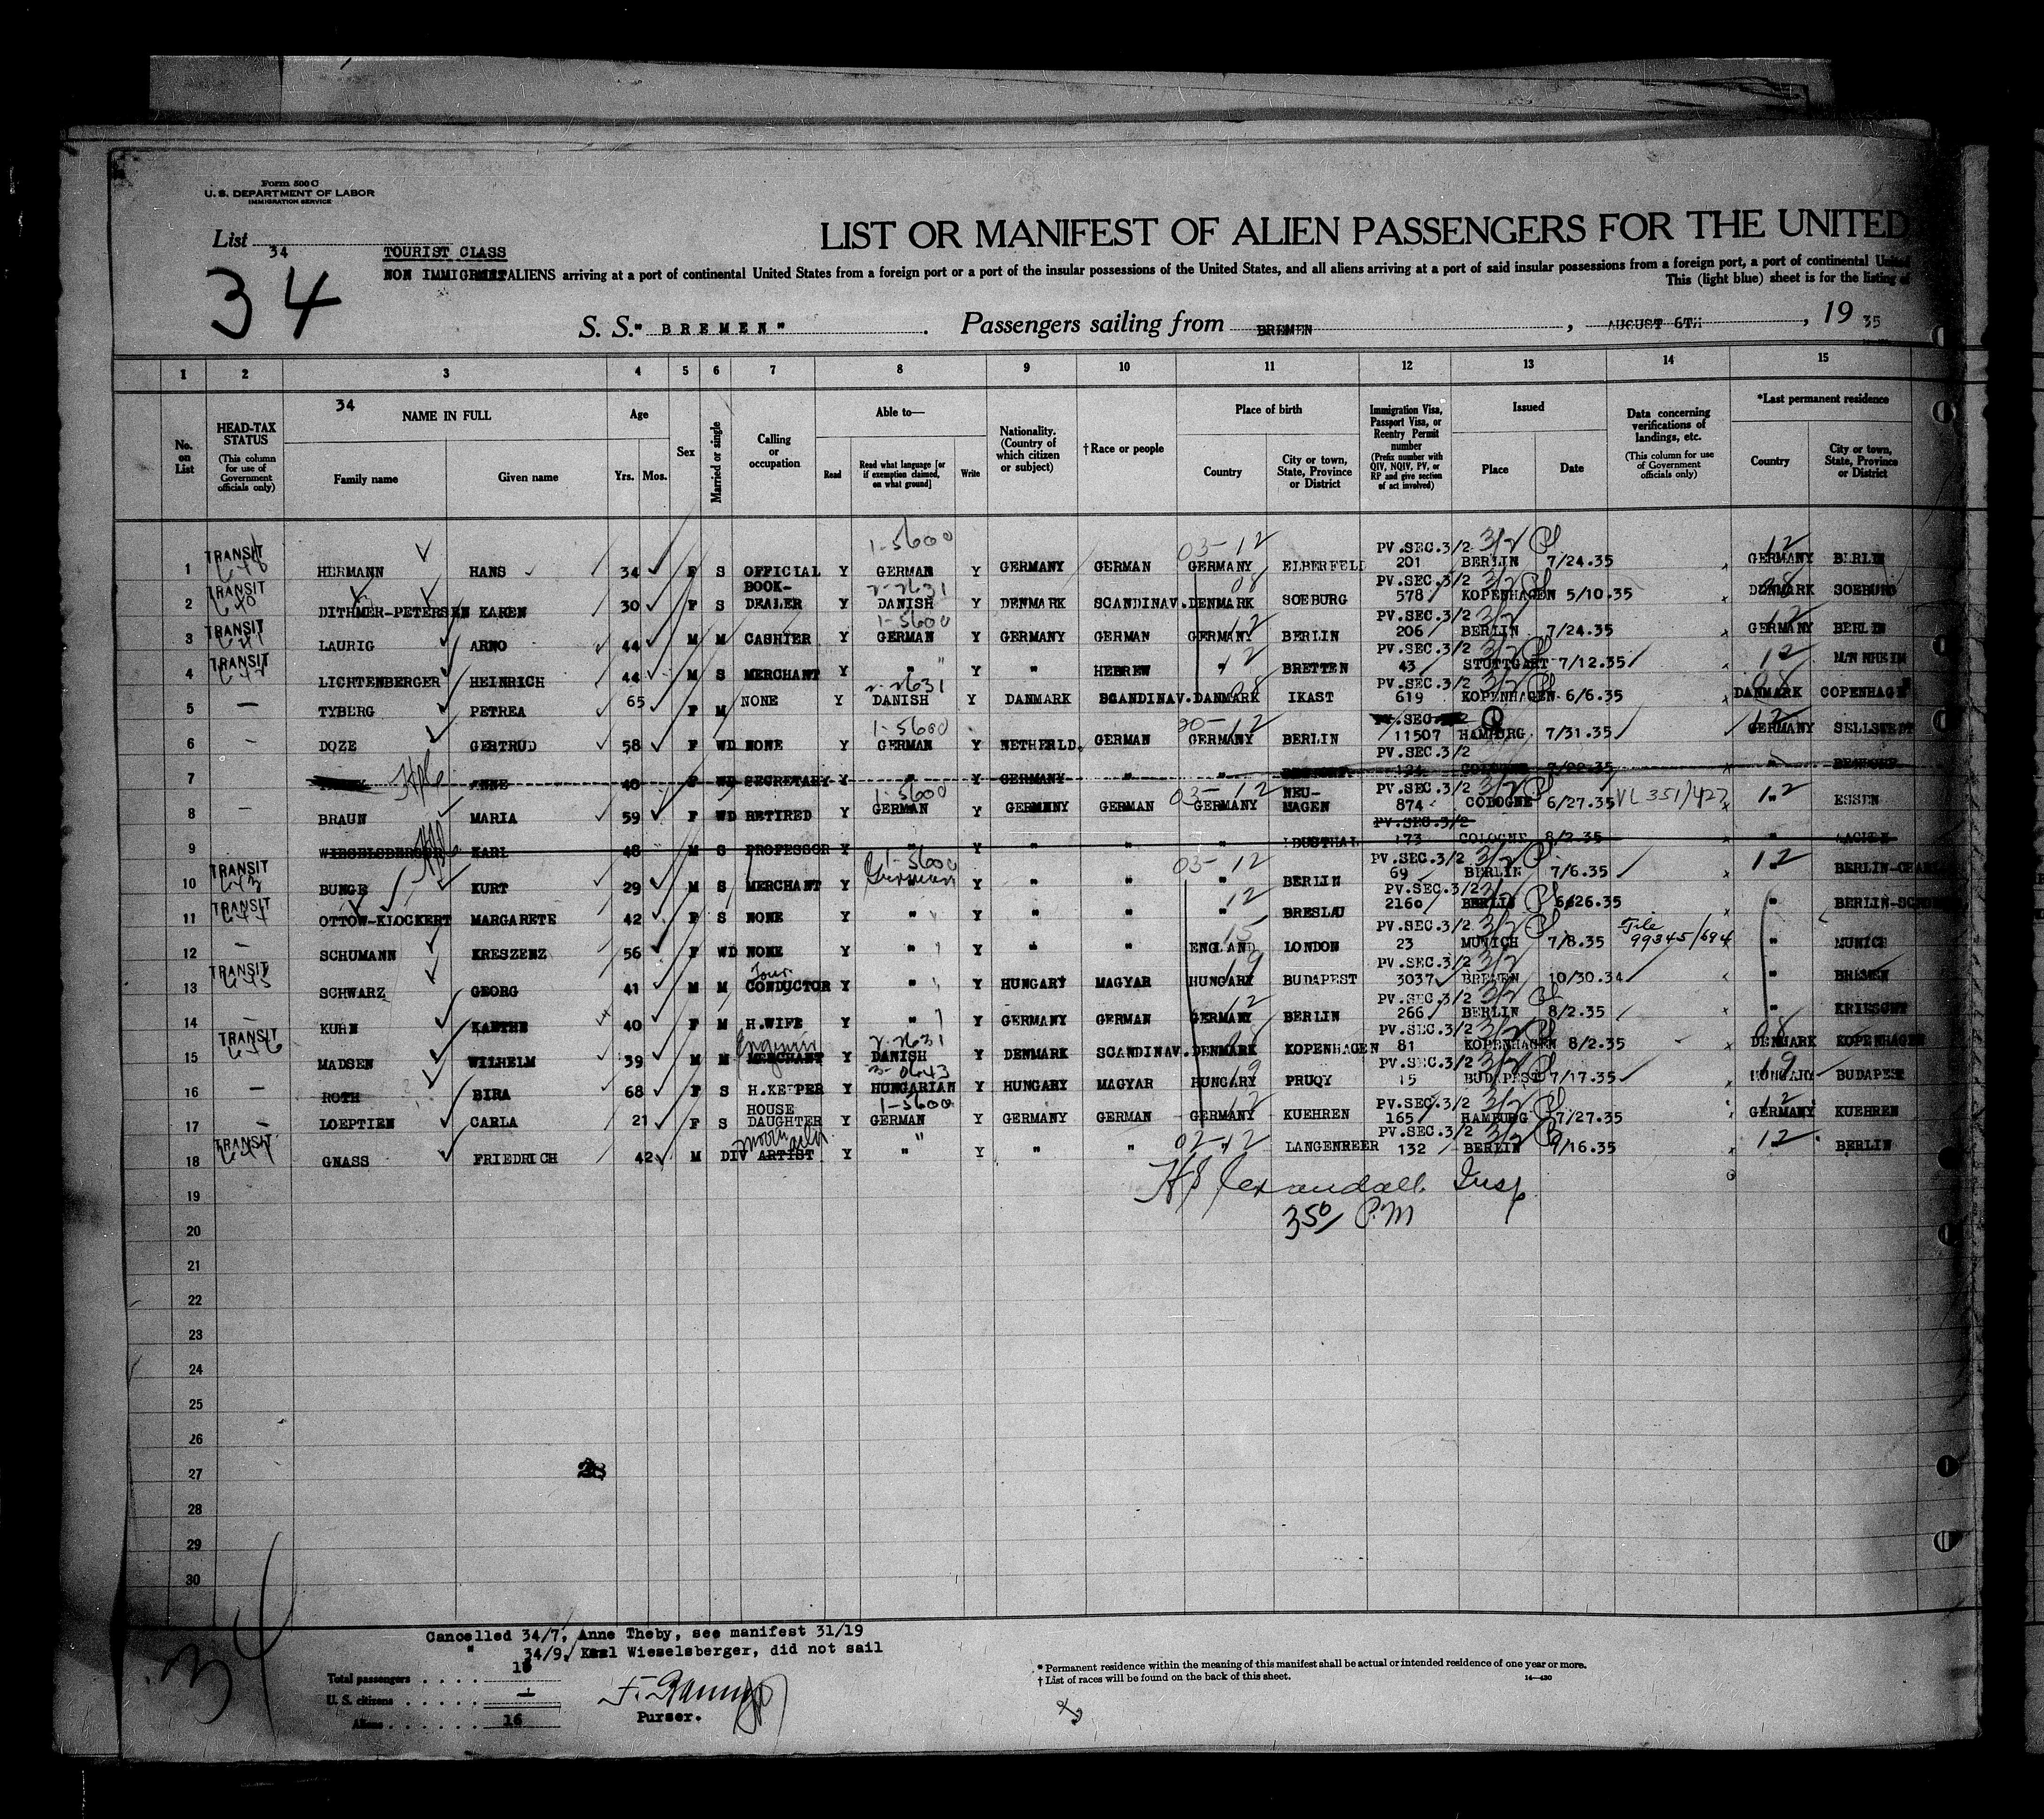 Form 500 C
U. S. DEPARTMENT OF LABOR
IMMIGRATION SERVICE
List 34
34
TOURIST CLASS
LIST OR MANIFEST OF ALIEN PASSENGERS FOR THE UNITED
NON IMMIGRANT ALIENS arriving at a port of continental United States from a foreign port or a port of the insular possessions of the United States, and all aliens arriving at a port of said insular possessions from a foreign port, a port of continental United
This (light blue) sheet is for the listing of
S. S. "BREMEN" . Passengers sailing from BREMEN , AUGUST 6TH , 19 35
1 2 3 4 5 6 7 8 9 10 11 12 13 14 15
No. on List
HEAD-TAX STATUS (This column for use of Government officials only)
34 NAME IN FULL
Family name Given name
Age Yrs. Mos.
Sex
Married or single
Calling or occupation
Able to—
Read Read what language [or if exemption claimed, on what ground] Write
Nationality. (Country of which citizen or subject)
†Race or people
Place of birth
Country City or town, State, Province or District
Immigration Visa, Passport Visa, or Reentry Permit number (Prefix number with QIV, NQIV, PV, or RP and give section of act involved)
Issued
Place Date
Data concerning verifications of landings, etc. (This column for use of Government officials only)
*Last permanent residence
Country City or town, State, Province or District
1 TRANSIT HERMANN HANS 34 F S OFFICIAL Y 1-5600 GERMAN Y GERMANY GERMAN 03-12 GERMANY ELBERFELD PV.SEC.3/2 201 3/2 BERLIN 7/24.35 12 GERMANY BERLIN
2 TRANSIT DITHMER-PETERSEN KAREN 30 F S BOOK-DEALER Y 2-2631 DANISH Y DENMARK SCANDINAV. 08 DENMARK SOEBURG PV.SEC.3/2 578 3/2 KOPENHAGEN 5/10.35 08 DENMARK SOEBURG
3 TRANSIT LAURIG ARNO 44 M M CASHIER Y 1-5600 GERMAN Y GERMANY GERMAN 12 GERMANY BERLIN PV.SEC.3/2 206 3/2 BERLIN 7/24.35 12 GERMANY BERLIN
4 TRANSIT LICHTENBERGER HEINRICH 44 M S MERCHANT Y " Y " HEBREW 12 " BRETTEN PV.SEC.3/2 43 3/2 STUTTGART 7/12.35 12 MANNHEIM
5 — TYBERG PETREA 65 F M NONE Y 2-2631 DANISH Y DANMARK SCANDINAV. 08 DANMARK IKAST PV.SEC.3/2 619 3/2 KOPENHAGEN 6/6.35 08 DANMARK COPENHAGEN
6 — DOZE GERTRUD 58 F WD NONE Y 1-5600 GERMAN Y NETHERLD. GERMAN 20-12 GERMANY BERLIN PV.SEC 11507 HAMBURG 7/31.35 12 GERMANY SELLSTEDT
7 ANNE 40 F WD SECRETARY Y " Y GERMANY " " PV.SEC.3/2 124 COLOGNE 7/22.35 " BENDORF
8 — BRAUN MARIA 59 F WD RETIRED Y 1-5600 GERMAN Y GERMANY GERMAN 03-12 GERMANY NEU-MAGEN PV.SEC.3/2 874 3/2 COLOGNE 6/27.35 VL 351/427 12 " ESSEN
9 WIESELSBERGER KARL 48 M S PROFESSOR Y " Y " " " PV.SEC.3/2 173 COLOGNE 8/2.35 " AACHEN
10 TRANSIT BUNGE KURT 29 M S MERCHANT Y 1-5600 German Y " " 03-12 BERLIN PV.SEC.3/2 69 3/2 BERLIN 7/6.35 12 BERLIN-
11 TRANSIT OTTOW-KLOCKERT MARGARETE 42 F S NONE Y " Y " " 12 " BRESLAU PV.SEC.3/2 2160 3/2 BERLIN 6/26.35 " BERLIN-
12 — SCHUMANN KRESZENZ 56 F WD NONE Y " Y " " 15 ENGLAND LONDON PV.SEC.3/2 23 3/2 MUNICH 7/8.35 File 99345/694 " MUNICH
13 TRANSIT SCHWARZ GEORG 41 M M Tour. CONDUCTOR Y " Y HUNGARY MAGYAR 19 HUNGARY BUDAPEST PV.SEC.3/2 3037 3/2 BREMEN 10/30.34 " BREMEN
14 — KUHN KAETHE 40 F M H.WIFE Y " Y GERMANY GERMAN 12 GERMANY BERLIN PV.SEC.3/2 266 3/2 BERLIN 8/2.35 "
15 TRANSIT MADSEN WILHELM 39 M M Engineer MERCHANT Y 2-2631 DANISH Y DENMARK SCANDINAV. 08 DENMARK KOPENHAGEN PV.SEC.3/2 81 3/2 KOPENHAGEN 8/2.35 08 DENMARK KOPENHAGEN
16 — ROTH BIRA 68 F S H.KEEPER Y 3-0643 HUNGARIAN Y HUNGARY MAGYAR 19 HUNGARY PRUQY PV.SEC.3/2 15 3/2 BUDAPEST 7/17.35 19 HUNGARY BUDAPEST
17 LOEPTIEN CARLA 21 F S HOUSE DAUGHTER Y 1-5600 GERMAN Y GERMANY GERMAN 12 GERMANY KUEHREN PV.SEC.3/2 165 3/2 HAMBURG 7/27.35 12 GERMANY KUEHREN
18 TRANSIT GNASS FRIEDRICH 42 M DIV ARTIST Y " Y " " 02-12 " LANGENREER PV.SEC.3/2 132 3/2 BERLIN 7/16.35 12 BERLIN
19 Insp.
20 350 P.M
21
22
23
24
25
26
27
28
29
30
34
Cancelled 34/7, Anne Theby, see manifest 31/19
" 34/9, Karl Wieselsberger, did not sail
Total passengers . . . . 16
U. S. citizens . . . . . —
Aliens . . . . . . 16
Purser.
* Permanent residence within the meaning of this manifest shall be actual or intended residence of one year or more.
† List of races will be found on the back of this sheet.
14—430